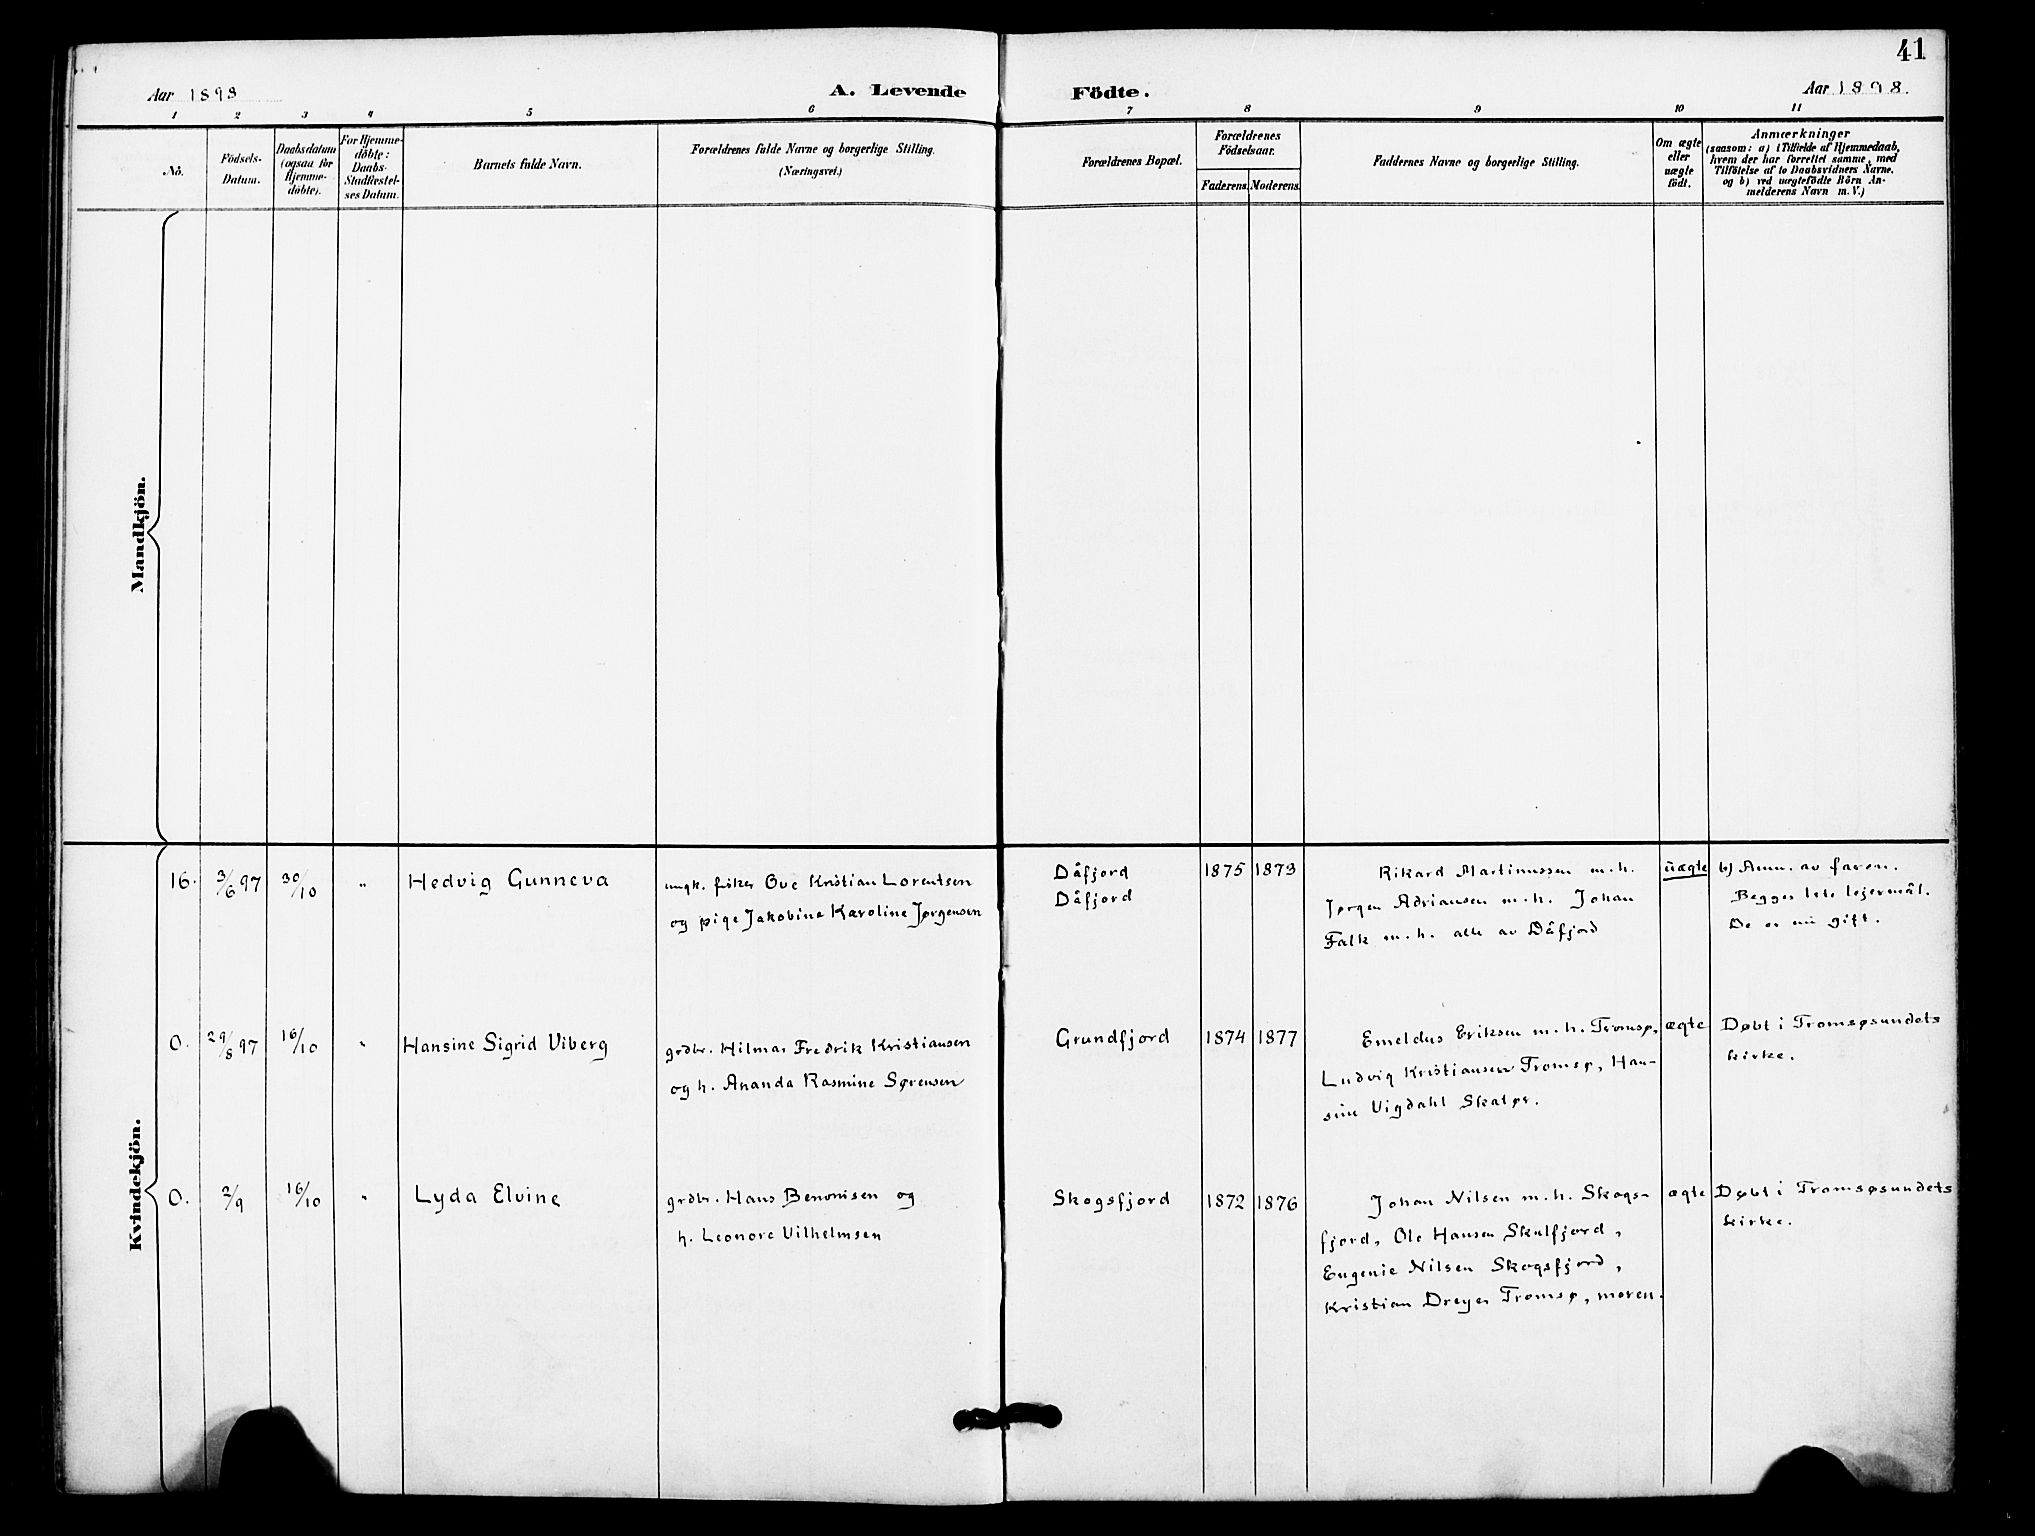 41
Aar 1898
A. Levende
Födte.
Aar 1898.
1 2 3 4 5 6 7 8 9 10 11
No.
Födsels-
Datum.
Daabsdatum
(ogsaa for
Hjemme-
döbte).
For Hjemme-
döbte:
Daabs-
Stadfæstel-
ses Datum.
Barnets fulde Navn.
Forældrenes fulde Navne og borgerlige Stilling.
(Næringsvei.)
Forældrenes Bopæl.
Forældrenes
Födselsaar.
Faderens. Moderens.
Faddernes Navne og borgerlige Stilling.
Om ægte
eller
uægte
födt.
Anmærkninger
(saasom: a) i Tilfælde af Hjemmedaab,
hvem der har forrettet samme, med
Tilföielse af to Daabsvidners Navne,
og b) ved uægtefödte Börn An-
melderens Navn m. V.)
Mandkjön.
Kvindekjön.
16. 3/6 97 30/10 " Hedvig Gunneva
ungk. fisker Ove Kristian Lorentsen
og pige Jakobine Karoline Jørgensen
Dåfjord
Dåfjord
1875 1873
Rikard Martinussen m.h.
Jørgen Adriansen m.h. Johan
Falk m.h. alle av Dåfjord
uægte
b) Anm. av faren.
Begges 1ste lejermål.
De er nu gift.
O. 29/8 97 16/10 " Hansine Sigrid Viberg
grdbr. Hilmar Fredrik Kristiansen
og h. Ananda Rasmine Sørensen
Grundfjord
1874 1877
Emeldus Eriksen m.h. Tromsø,
Ludvig Kristiansen Tromsø, Han-
sine Vigdahl Skatør.
ægte
Døbt i Tromsøsundets
kirke.
O. 2/9 16/10 " Lyda Elvine
grdbr. Hans Benonisen og
h. Leonore Vilhelmsen
Skogsfjord
1872 1876
Johan Nilsen m.h. Skogs-
fjord, Ole Hansen Skulfjord,
Eugenie Nilsen Skogsfjord,
Kristian Dreyer Tromsø, moren.
ægte
Døbt i Tromsøsundets
kirke.